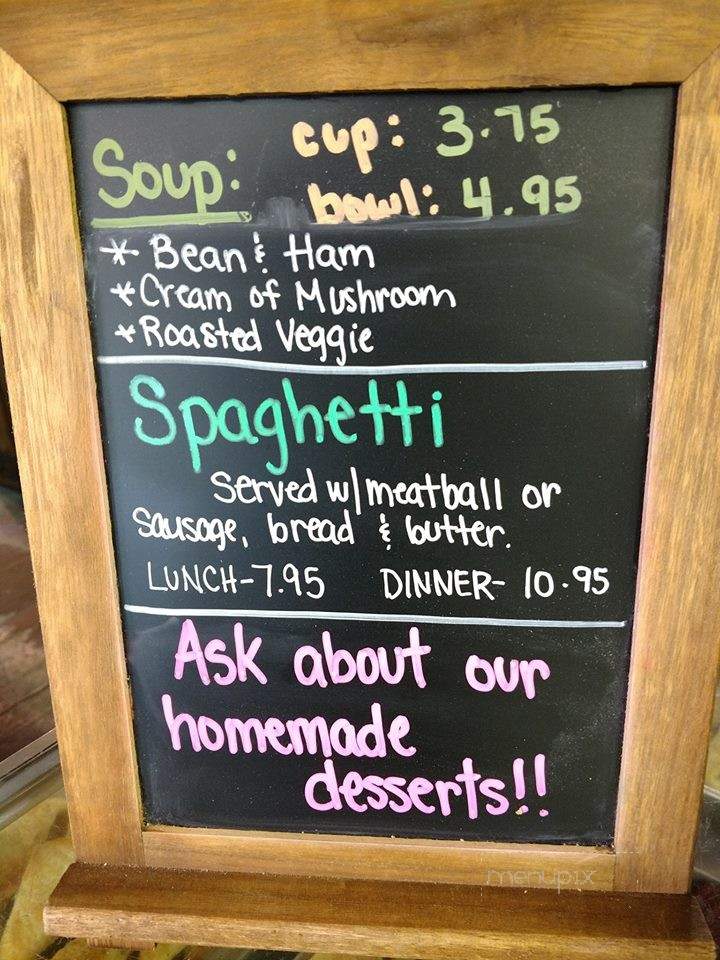 Soup: cup: 3.75
bowl: 4.95
* Bean & Ham
* Cream of Mushroom
* Roasted Veggie
Spaghetti
Served w/ meatball or
Sausage, bread & butter.
LUNCH-7.95 DINNER- 10.95
Ask about our
homemade
desserts!!
menupix